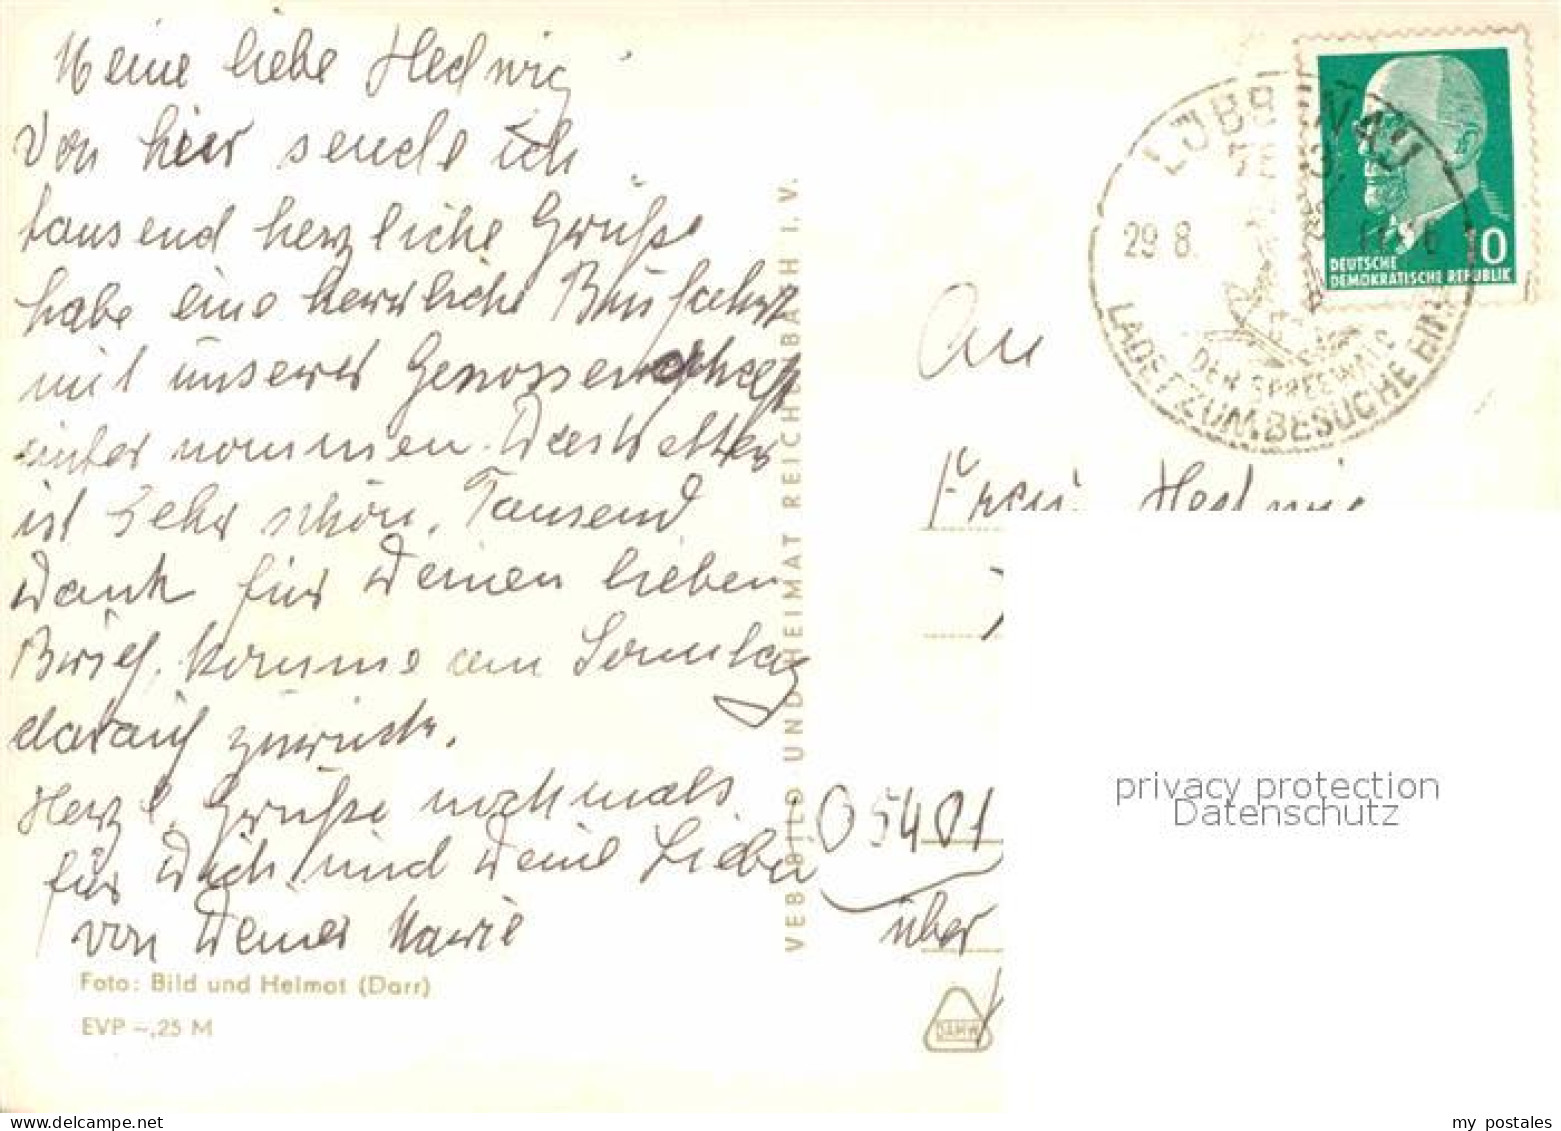 Meine liebe Hedwig
Von hier sende ich
tausend herzliche Grüße
habe eine herrliche Busfahrt
mit unserer Genossenschaft
unternommen. Das Wetter
ist sehr schön. Tausend
Dank für Deinen lieben
Brief. Komme am Sonntag
darauf zurück.
Herzl. Grüße nochmals
für Dich und Deine Lieben
von Deiner Marie
Foto: Bild und Heimat (Darr)
EVP –,25 M
VEB BILD UND HEIMAT REICHENBACH I. V.
LÜBBENAU
29. 8.
DER SPREEWALD
LADET ZUM BESUCHE EIN
DEUTSCHE
DEMOKRATISCHE REPUBLIK
10
An
Frau Hedwig
05401
über
DAMW
privacy protection
Datenschutz
my postales